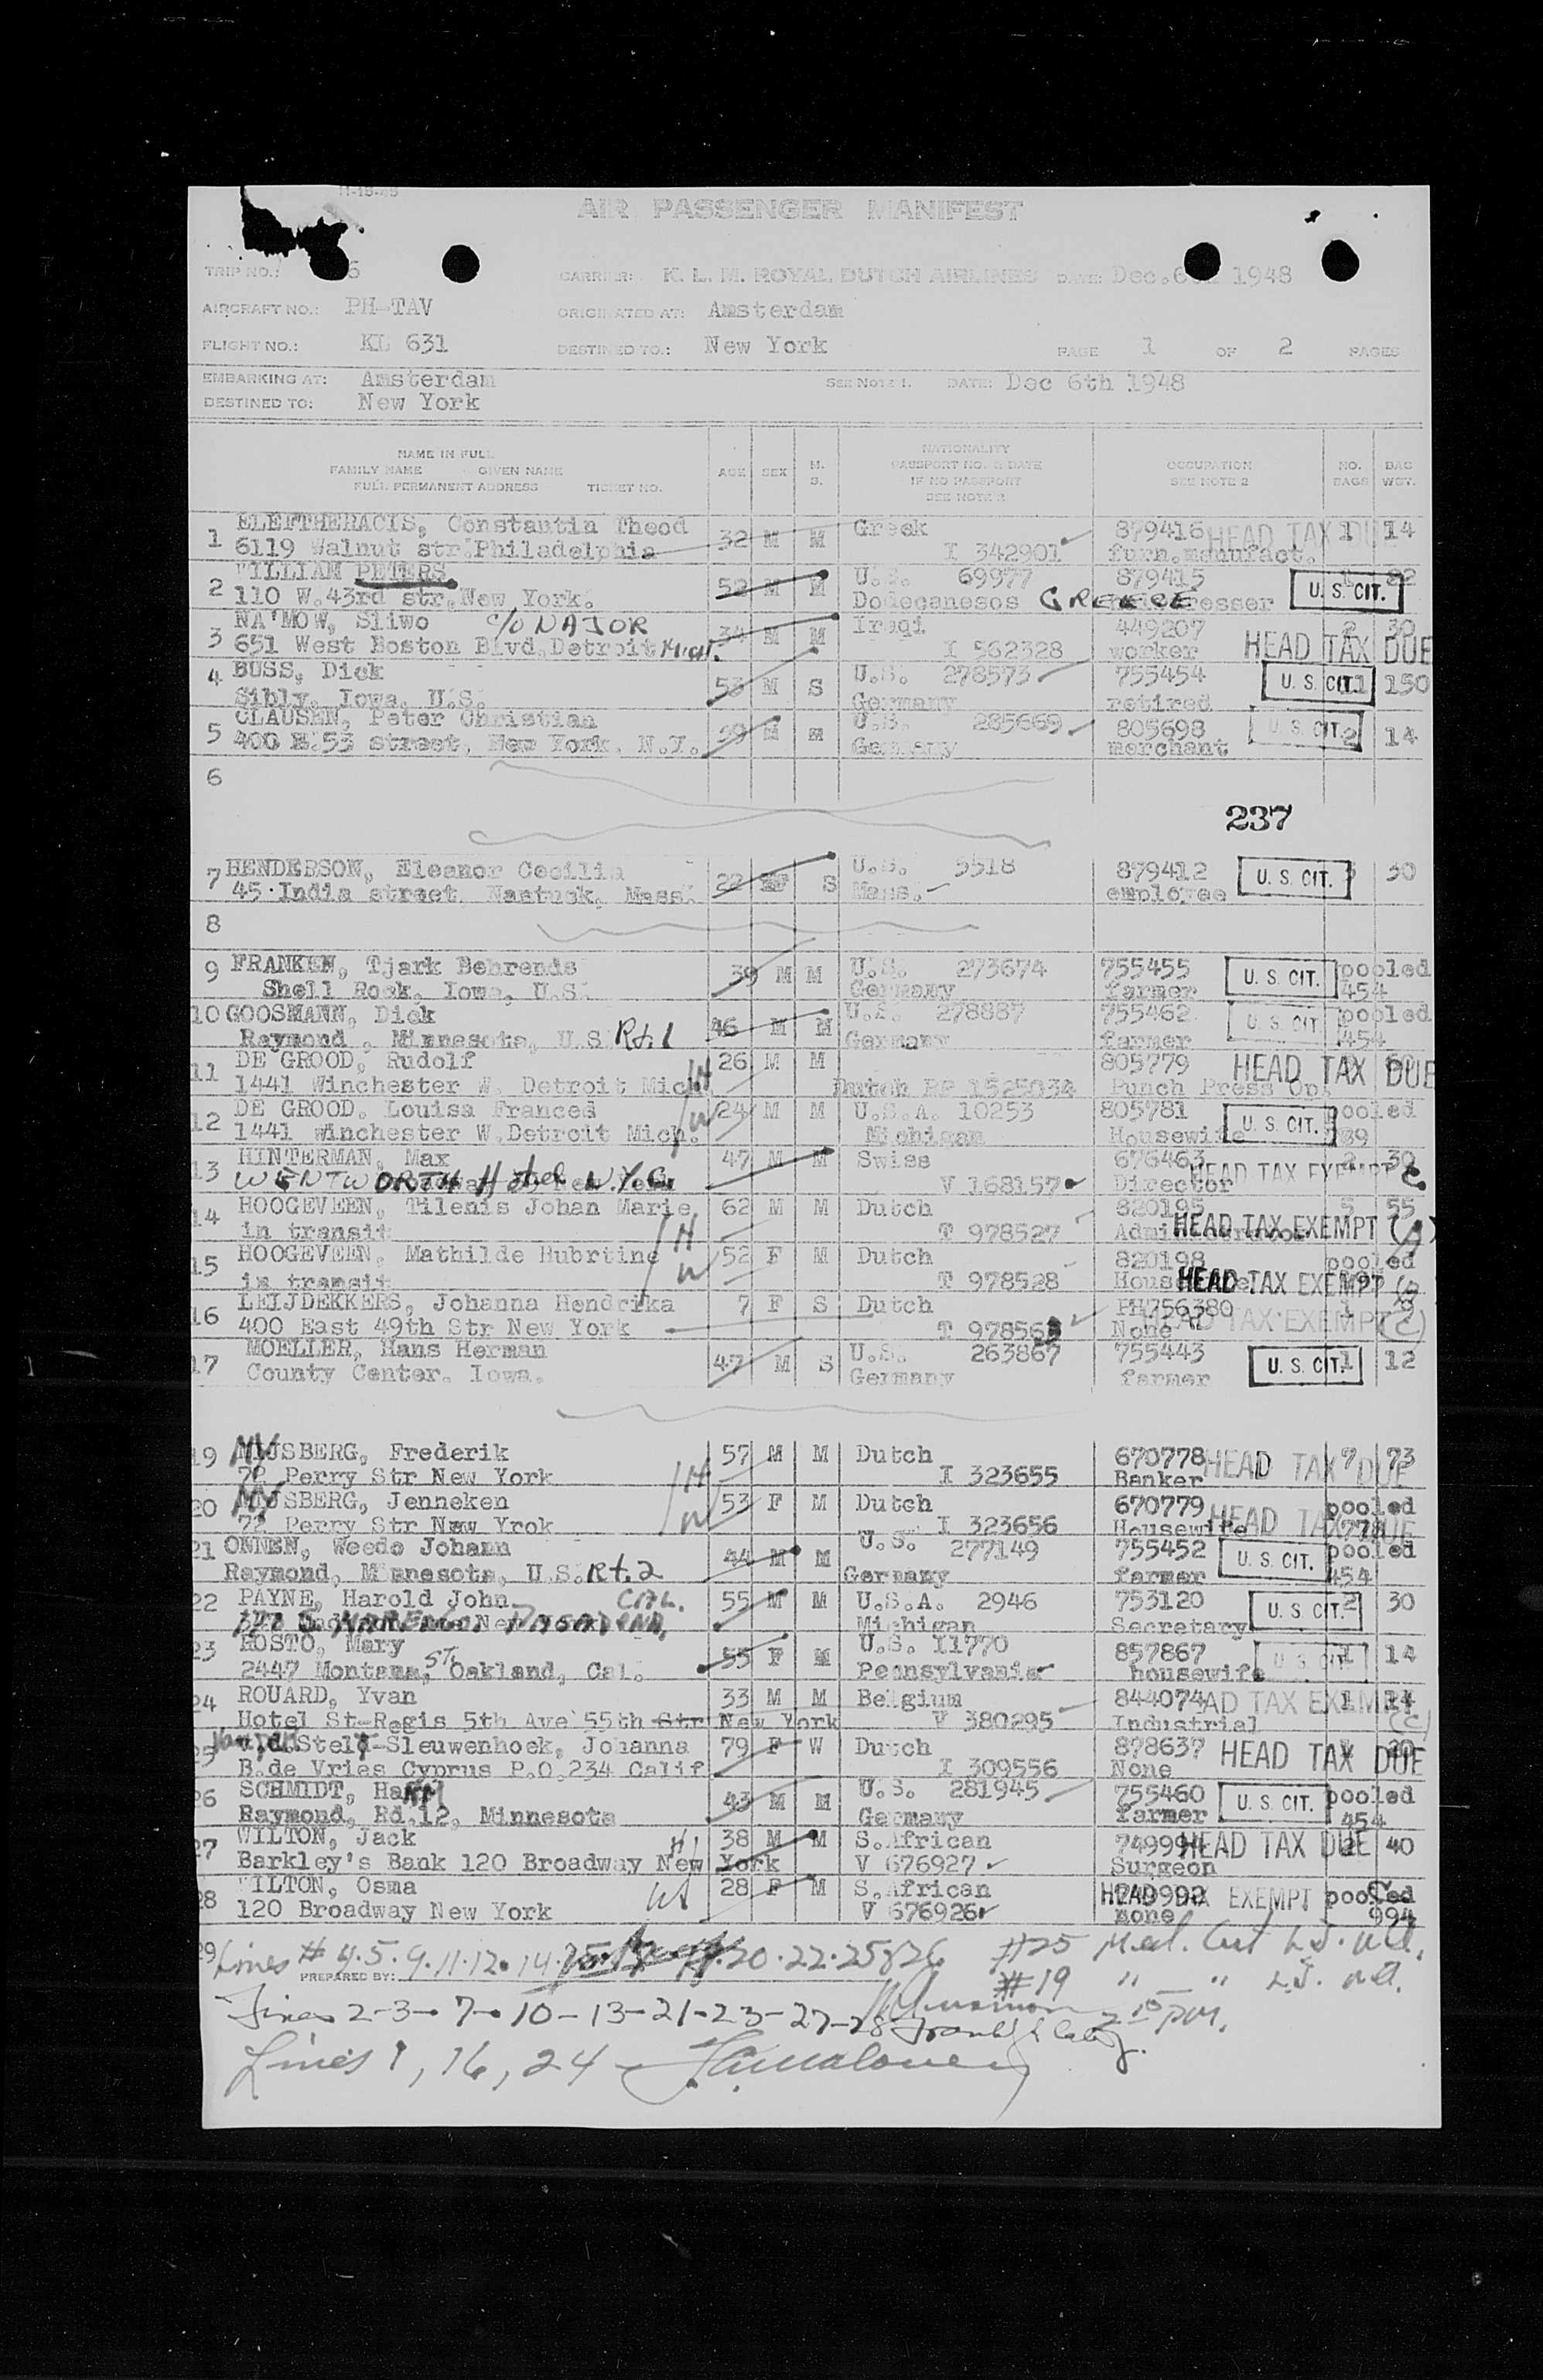 11-18-48
AIR PASSENGER MANIFEST
TRIP NO.: 6 CARRIER: K. L. M. ROYAL DUTCH AIRLINES DATE: Dec. 6 1948
AIRCRAFT NO.: PH-TAV ORIGINATED AT: Amsterdam
FLIGHT NO.: KL 631 DESTINED TO.: New York PAGE 1 OF 2 PAGES
EMBARKING AT: Amsterdam SEE NOTE 1. DATE: Dec 6th 1948
DESTINED TO: New York
NAME IN FULL
FAMILY NAME GIVEN NAME
FULL PERMANENT ADDRESS TICKET NO.
AGE SEX M. S.
NATIONALITY
PASSPORT NO. & DATE
IF NO PASSPORT
SEE NOTE 2
OCCUPATION
SEE NOTE 2
NO. BAGS
BAG WGT.
1 ELEFTHERACIS, Constantin Theod 32 M M Greek 879416 HEAD TAX DUE 1 14
6119 Walnut str.Philadelphia I 342901 furn.manufact.
2 WILLIAM PETERS 52 M M U.S. 69977 879415 U. S. CIT. 22
110 W.43rd str.New York. Dodecanesos GREECE
3 NA'MOW, Sliwo c/o NAJOR 34 M M Iraqi 449207 2 30
651 West Boston Blvd.Detroit Mich. I 562328 worker HEAD TAX DUE
4 BUSS, Dick 53 M S U.S. 278573 755454 U. S. CIT. 11 150
Sibly, Iowa, U.S. Germany retired
5 CLAUSEN, Peter Christian 59 M M U.S. 285669 805698 U. S. CIT. 2 14
400 E.53 street, New York. N.Y. Germany merchant
6
237
7 HENDERSON, Eleanor Cecilia 22 F S U.S. 5518 879412 U. S. CIT. 3 30
45 India street. Nantuck. Mass. Mass. employee
8
9 FRANKEN, Tjark Behrends 39 M M U.S. 273674 755455 U. S. CIT. pooled
Shell Rock, Iowa, U.S. Germany farmer 454
10 GOOSMANN, Dick 46 M M U.S. 278887 755462 U. S. CIT. pooled
Raymond , Minnesota, U.S. Rt. 1 Germany farmer 454
11 DE GROOD, Rudolf 26 M M 805779 HEAD TAX DUE
1441 Winchester W. Detroit Mich. H Dutch PP 1525034 Punch Press Op.
12 DE GROOD. Louisa Frances W 24 M M U.S.A. 10253 805781 U. S. CIT. pooled
1441 Winchester W.Detroit Mich. Michigan Housewife
13 HINTERMAN, Max 47 M M Swiss 676463 2 30
WENTWORTH Hotel N.Y.C. V 168157 Director HEAD TAX EXEMPT C
14 HOOGEVEEN, Tilenis Johan Marie 62 M M Dutch 820195 5 55
in transit H T 978527 HEAD TAX EXEMPT (A)
15 HOOGEVEEN, Mathilde Hubrtine W 52 F M Dutch 820198 pooled
in transit T 978528 HEAD TAX EXEMPT
16 LEIJDEKKERS, Johanna Hendrika 7 F S Dutch PH756380 1
400 East 49th Str New York T 97856 None HEAD TAX EXEMPT (C)
17 MOELLER, Hans Herman 47 M S U.S. 263867 755443 U. S. CIT. 1 12
County Center. Iowa. Germany farmer
19 MYSBERG, Frederik 57 M M Dutch 670778 HEAD TAX DUE 7 73
72 Perry Str New York H I 323655 Banker
20 MYSBERG, Jenneken W 53 F M Dutch 670779 HEAD TAX DUE pooled
72 Perry Str New Yrok I 323656 Housewife 778
21 ONNEN, Weedo Johann 44 M M U.S. 277149 755452 U. S. CIT. pooled
Raymond, Minnesota, U.S. Rt. 2 Germany farmer 454
22 PAYNE, Harold John CAL. 55 M M U.S.A. 2946 753120 U. S. CIT. 2 30
PASADENA, Michigan Secretary
23 ROSTO, Mary 55 F M U.S. 11770 857867 U S CIT 1 14
2447 Montana, ST. Oakland, Cal. Pennsylvania housewife
24 ROUARD, Yvan 33 M M Belgium 844074 HEAD TAX EXEMPT (C) 1 14
Hotel St-Regis 5th Ave 55th Str New York V 380295 Industrial
25 Stelt-Sleuwenhoek, Johanna 79 F W Dutch 878637 HEAD TAX DUE
B.de Vries Cyprus P.O.234 Calif I 309556 None
26 SCHMIDT, HARM 43 M M U.S. 281945 755460 U. S. CIT. pooled
Raymond, Rd.12, Minnesota Germany farmer 454
27 WILTON, Jack H 38 M M S.African 749994 HEAD TAX DUE 2 40
Barkley's Bank 120 Broadway New York V 676927 Surgeon
28 WILTON, Osma W 28 F M S.African HEAD TAX EXEMPT pooled
120 Broadway New York V 676926 none 994
29 Lines # 4.5.9.11.12.14. 20.22.25&26 #25 Med. Cert L.I. N.Y.
PREPARED BY: #19 " " L.I.
Lines 2-3-7-10-13-21-23-27-28 2 15 PM.
Lines 1, 16, 24